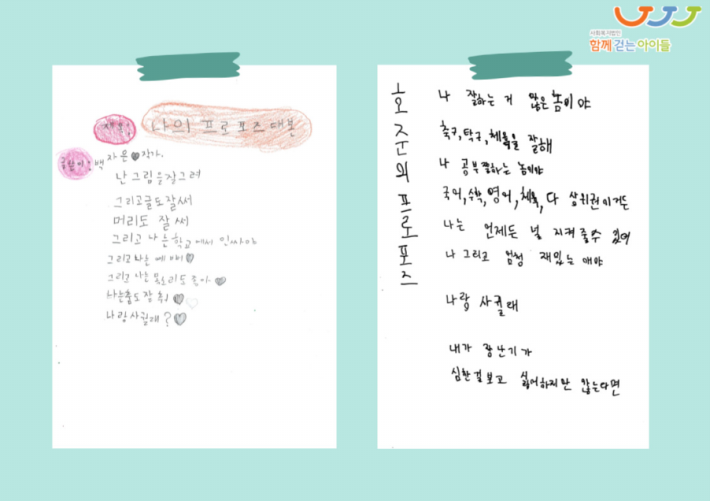 사회복지법인
함께 걷는 아이들
제목
나의 프로포즈 대본
글쓴이 백자은♥작가.
난 그림을 잘 그려
그리고 글도 잘 써
머리도 잘 써
그리고 나는 학교에서 인싸야
그리고 나는 예뻐♥
그리고 나는 목소리도 좋아♥
나는 춤도 잘 춰♥
나랑 사귈래?♥
호준의 프로포즈
나 잘하는 거 많은 놈이야
축구, 탁구, 체육을 잘해
나 공부 잘하는 놈이야
국어, 수학, 영어, 체육, 다 상위권이거든
나는 언제든 널 지켜줄 수 있어
나 그리고 엄청 재밌는 애야
나랑 사귈래
내가 장난기가
심한걸 보고 싫어하지만 않는다면